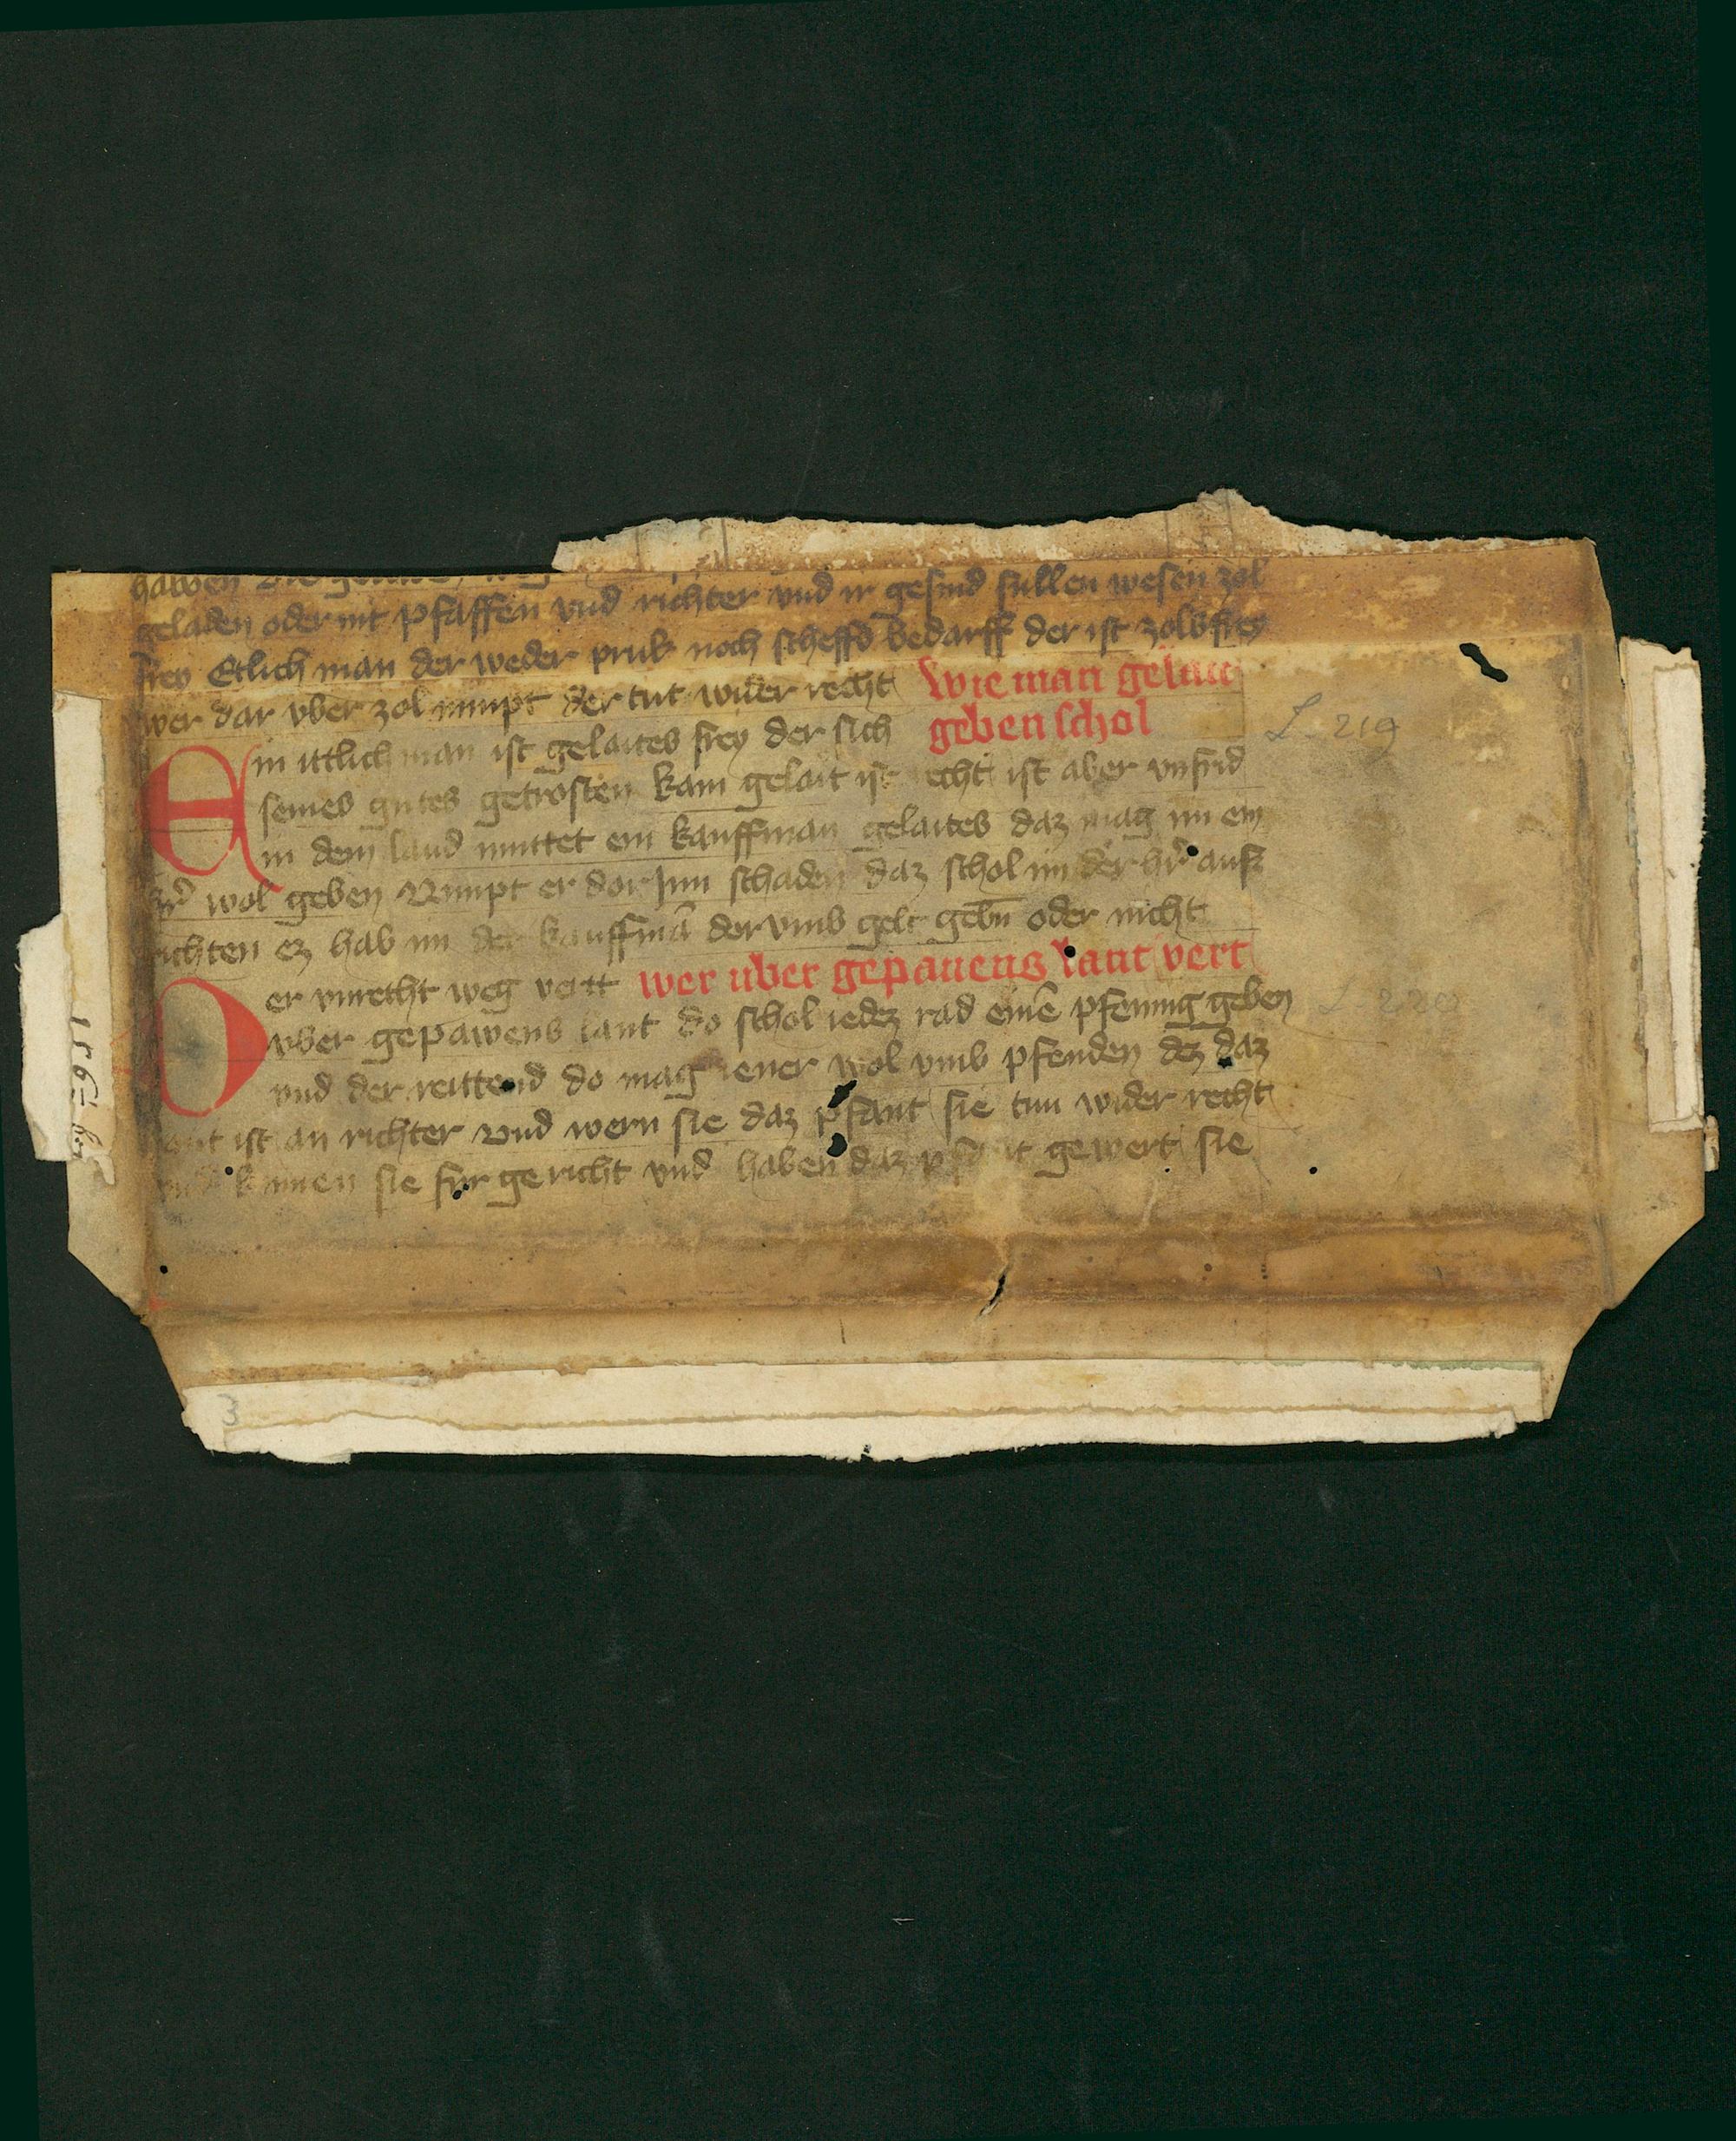 haben
geladen oder nit pfaffen vnd richter vnd ir gesind sullen wesen zol
frey Etlich man der weder pruk noch scheffd bedarff der ist zolbfrey
wer dar vber zol nimpt der tut wider recht Wie man gelait
in ittlich man ist gelaites frey der sich geben schol
E seines gutes getrosten kan gelait ist recht ist aber vnfrid
in dem land muttet ein kauffman gelaites daz mag im ein
hr̄ wol geben Nimpt er dor Inn schaden daz schol im der hr̄ auß
richten ez hab im der kauffmā dervmb gelt gebn̄ oder nicht
er vnrecht weg vertt wer uber gepauens lant vert
D vber gepawens lant do schol iedez rad einē pfennig geben
vnd der reittend do mag iener wol vmb pfenden dez daz
lant ist an richter vnd wern sie daz pfant sie tun wider recht
vnd kumen sie fur gericht vnd haben daz gewert sie
L. 219
L. 220
3